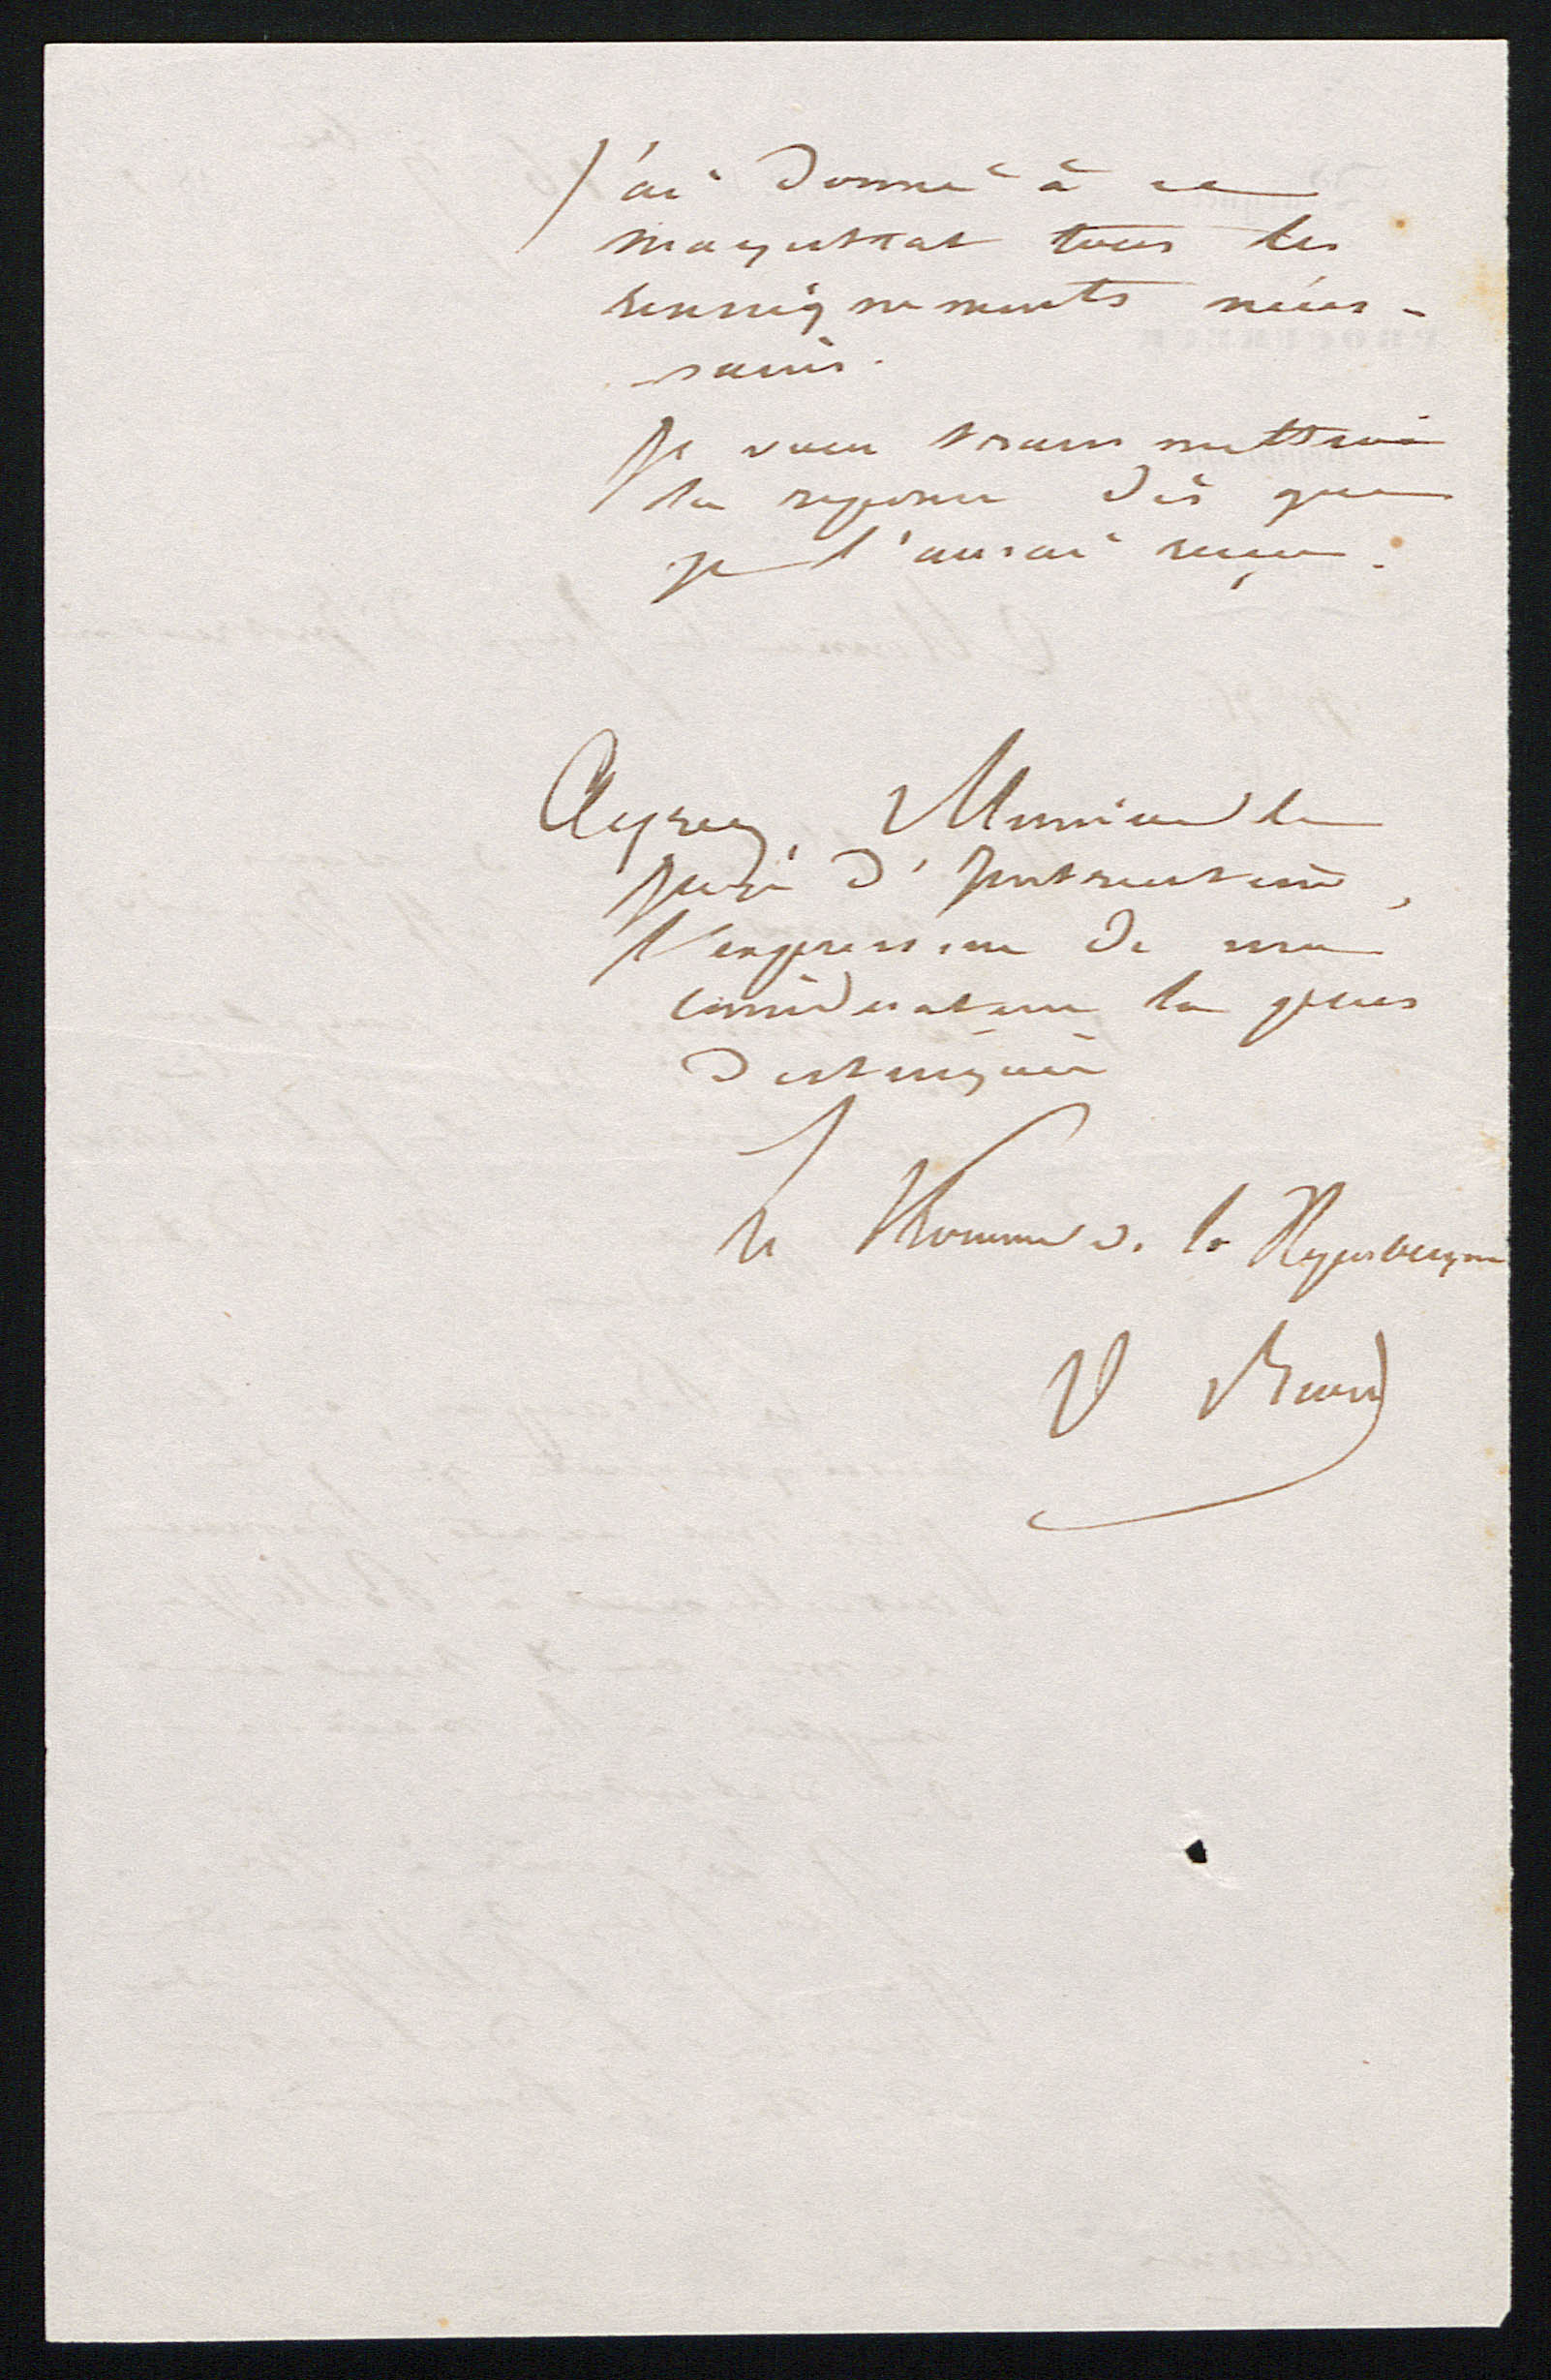 J'ai donné à ce
magistrat tous les
renseignements néces-
saires.
Je vous transmettrai
la réponse dès que
je l'aurai reçue.
Agréez, Monsieur le
Juge d'Instruction,
l'expression de ma
considération la plus
distinguée
le Procureur de la République